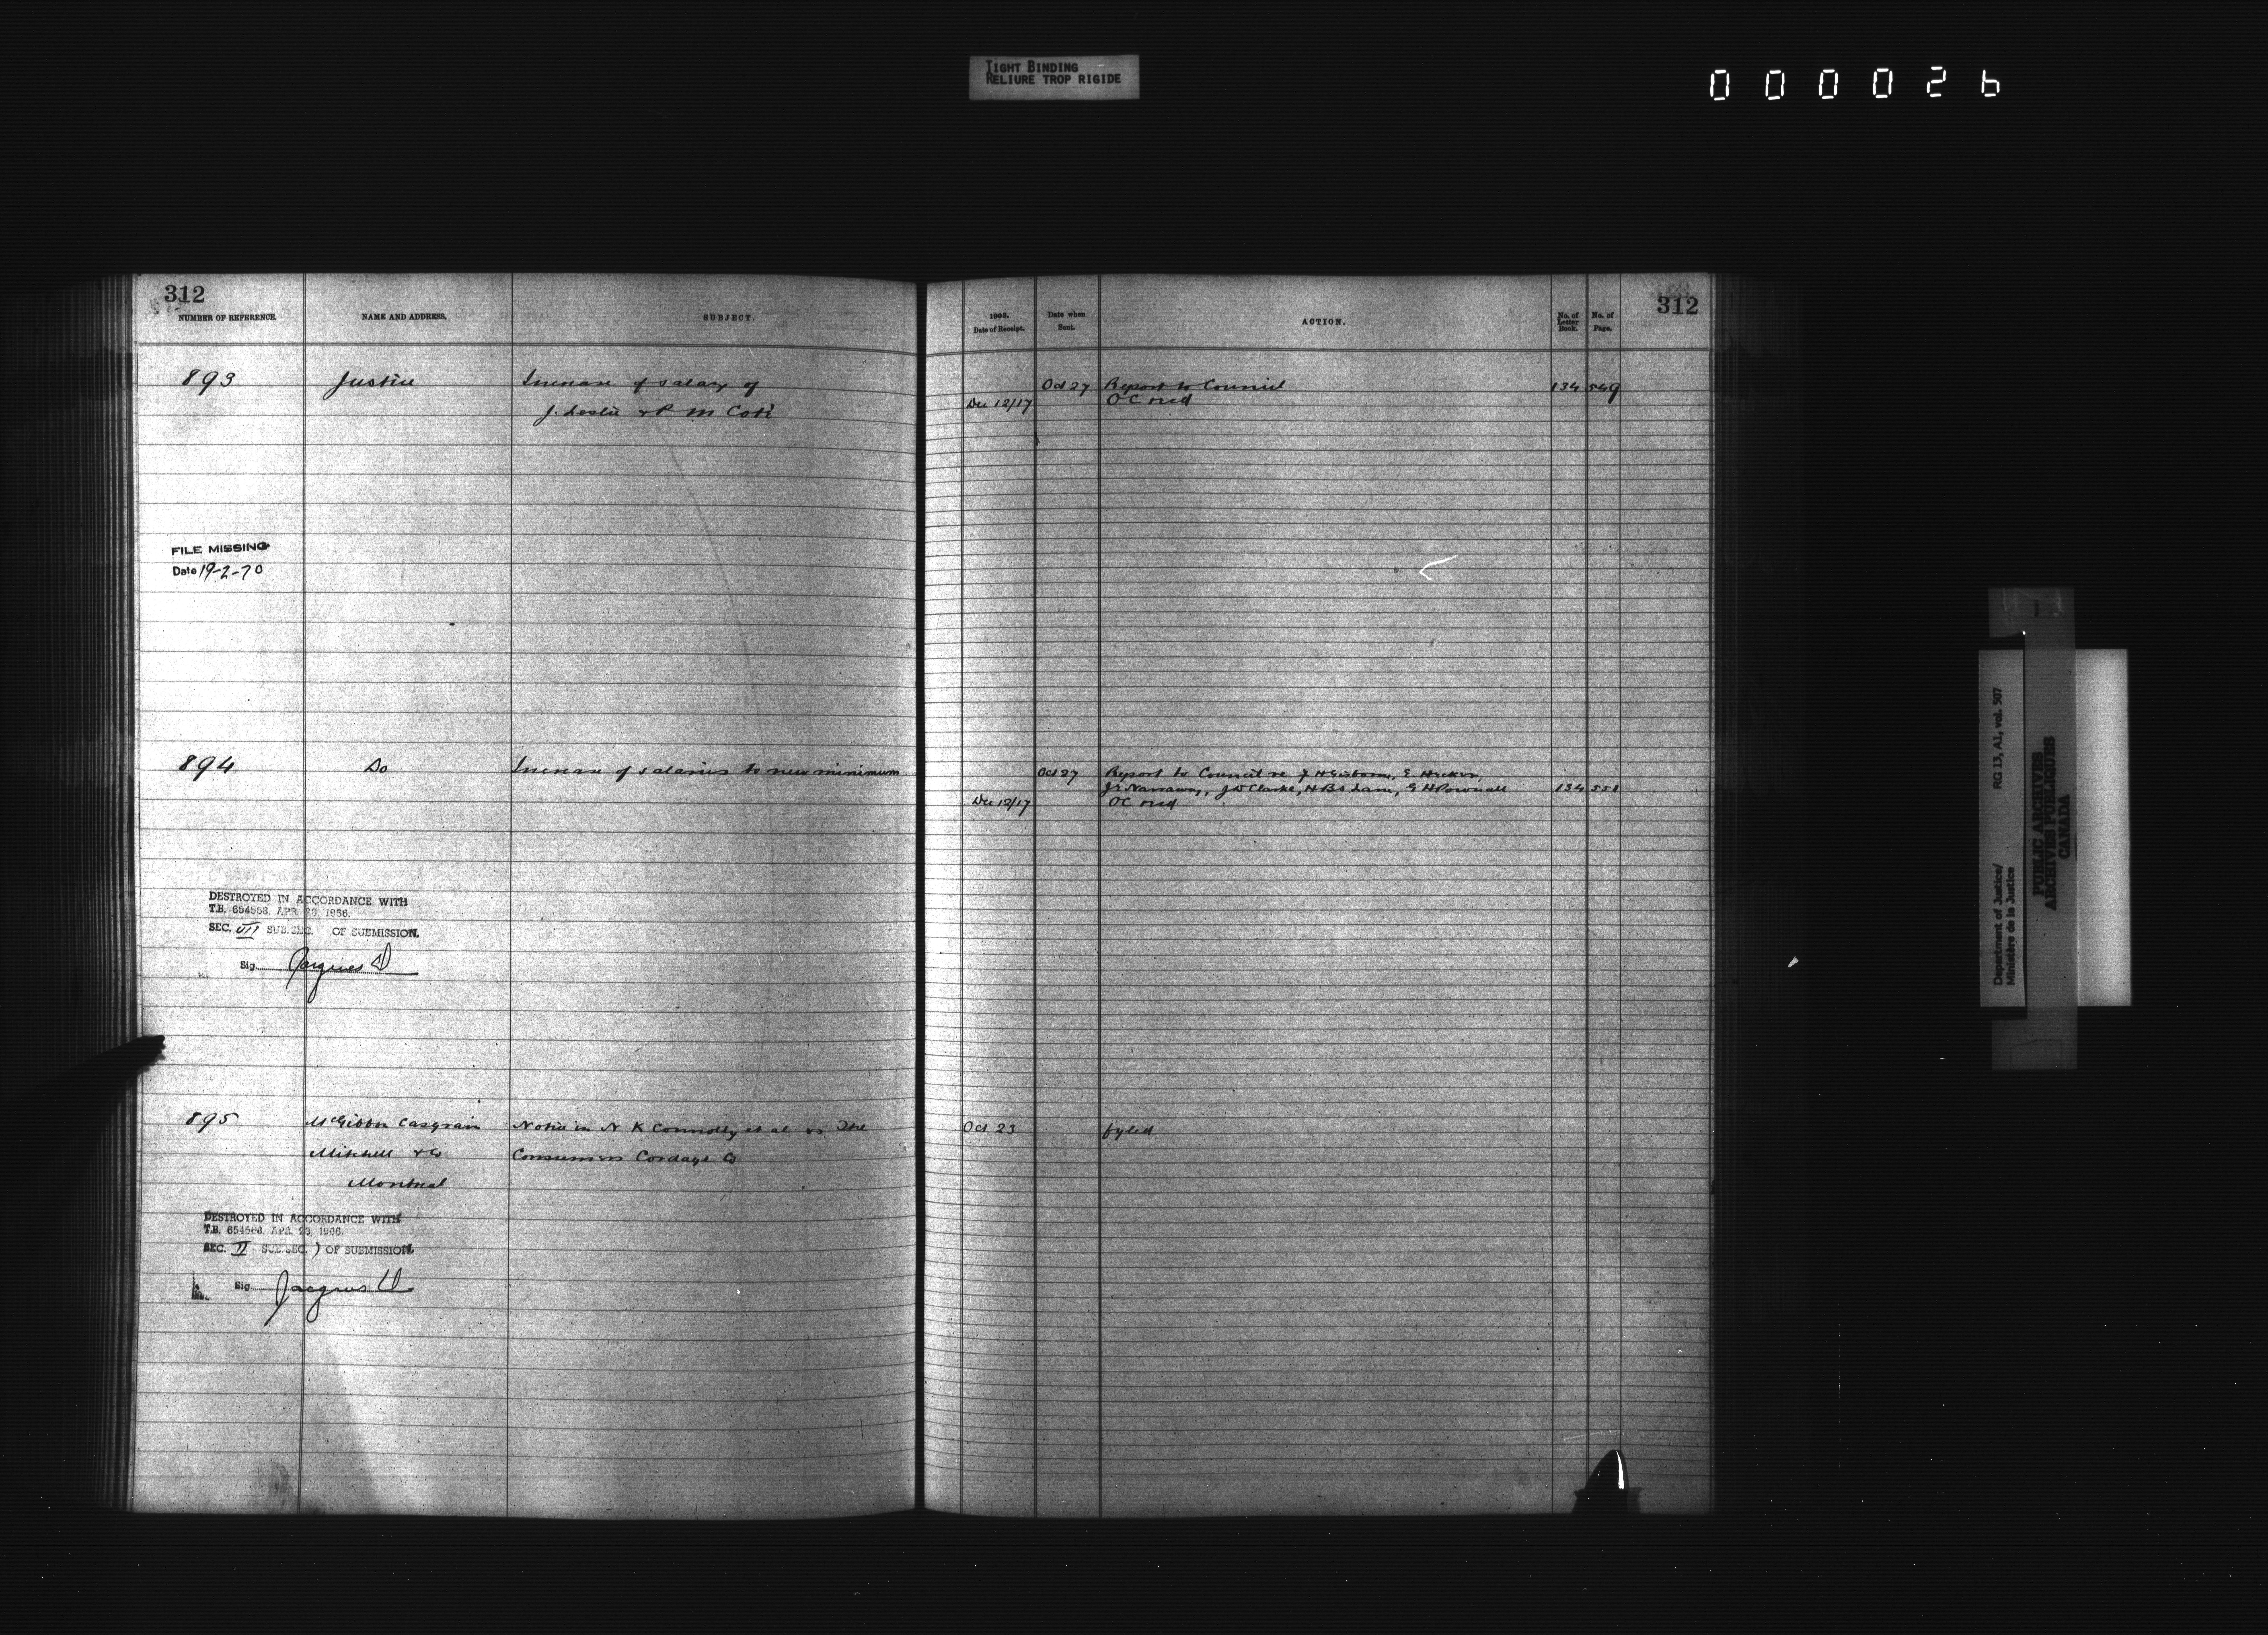 TIGHT BINDING
RELIURE TROP RIGIDE
000026
312
NUMBER OF REFERENCE.
NAME AND ADDRESS.
SUBJECT.
893
Justice
Increase of salary of
J. Leslie & P M Coté
FILE MISSING
Date 19-2-70
894
Do
Increase of salaries to new minimum
DESTROYED IN ACCORDANCE WITH
T.B. 654558, APR. 28, 1966.
SEC. VII SUB.SEC. OF SUBMISSION.
Sig. Jacques D
895
McGibbon Casgrain
Mitchell & Co
Montreal
Notice in N K Connolly et al vs The
Consumers Cordage Co
DESTROYED IN ACCORDANCE WITH
T.B. APR. 1966.
SEC. II SUB.SEC. ) OF SUBMISSION.
Sig. Jacques D
312
1903.
Date of Receipt.
Date when
Sent.
ACTION.
No. of
Letter
Book.
No. of
Page.
Oct 27 Report to Council 134 549
Dec 12/17 OC recd
Oct 27 Report to Council re F H Gisborne,
J D Clarke, G H Pownall 134 551
Dec 12/17 OC recd
Oct 23 fyled
Department of Justice/
Ministère de la Justice
RG 13, A1, vol. 507
PUBLIC ARCHIVES
ARCHIVES PUBLIQUES
CANADA